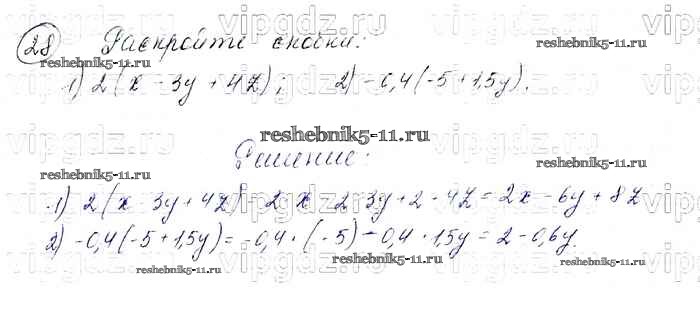 28 Раскройте скобки:
1) 2(x - 3y + 4z); 2) -0,4(-5 + 1,5y).
reshebnik5-11.ru
reshebnik5-11.ru
reshebnik5-11.ru
Решение:
reshebnik5-11.ru
reshebnik5-11.ru
1) 2(x - 3y + 4z) = 2 · x - 2 · 3y + 2 · 4z = 2x - 6y + 8z
2) -0,4(-5 + 1,5y) = -0,4 · (-5) - 0,4 · 1,5y = 2 - 0,6y.
reshebnik5-11.ru
reshebnik5-11.ru
reshebnik5-11.ru